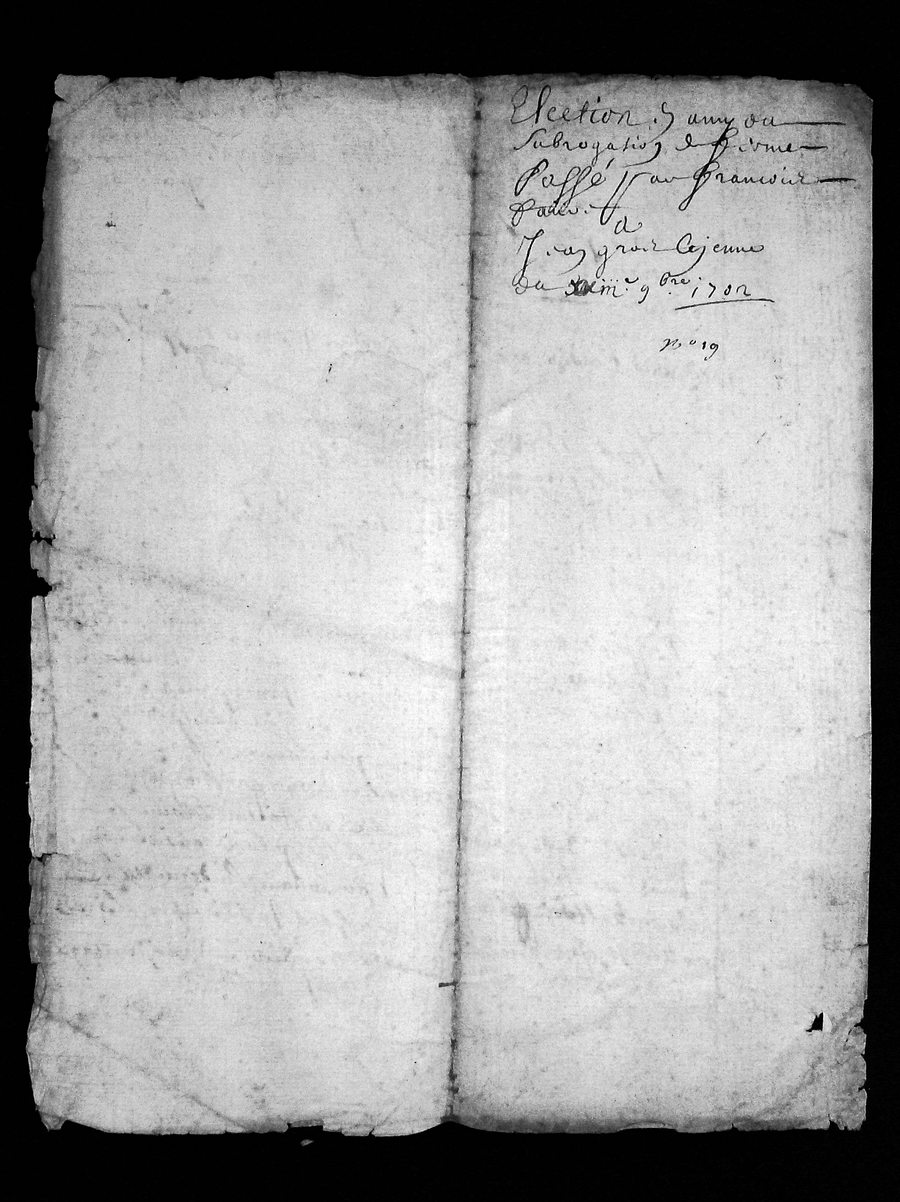 Election En amy ou
Subrogation de ferme
Passé par francois
a
Jean grois Lajeune
du 9bre 1702
No 19